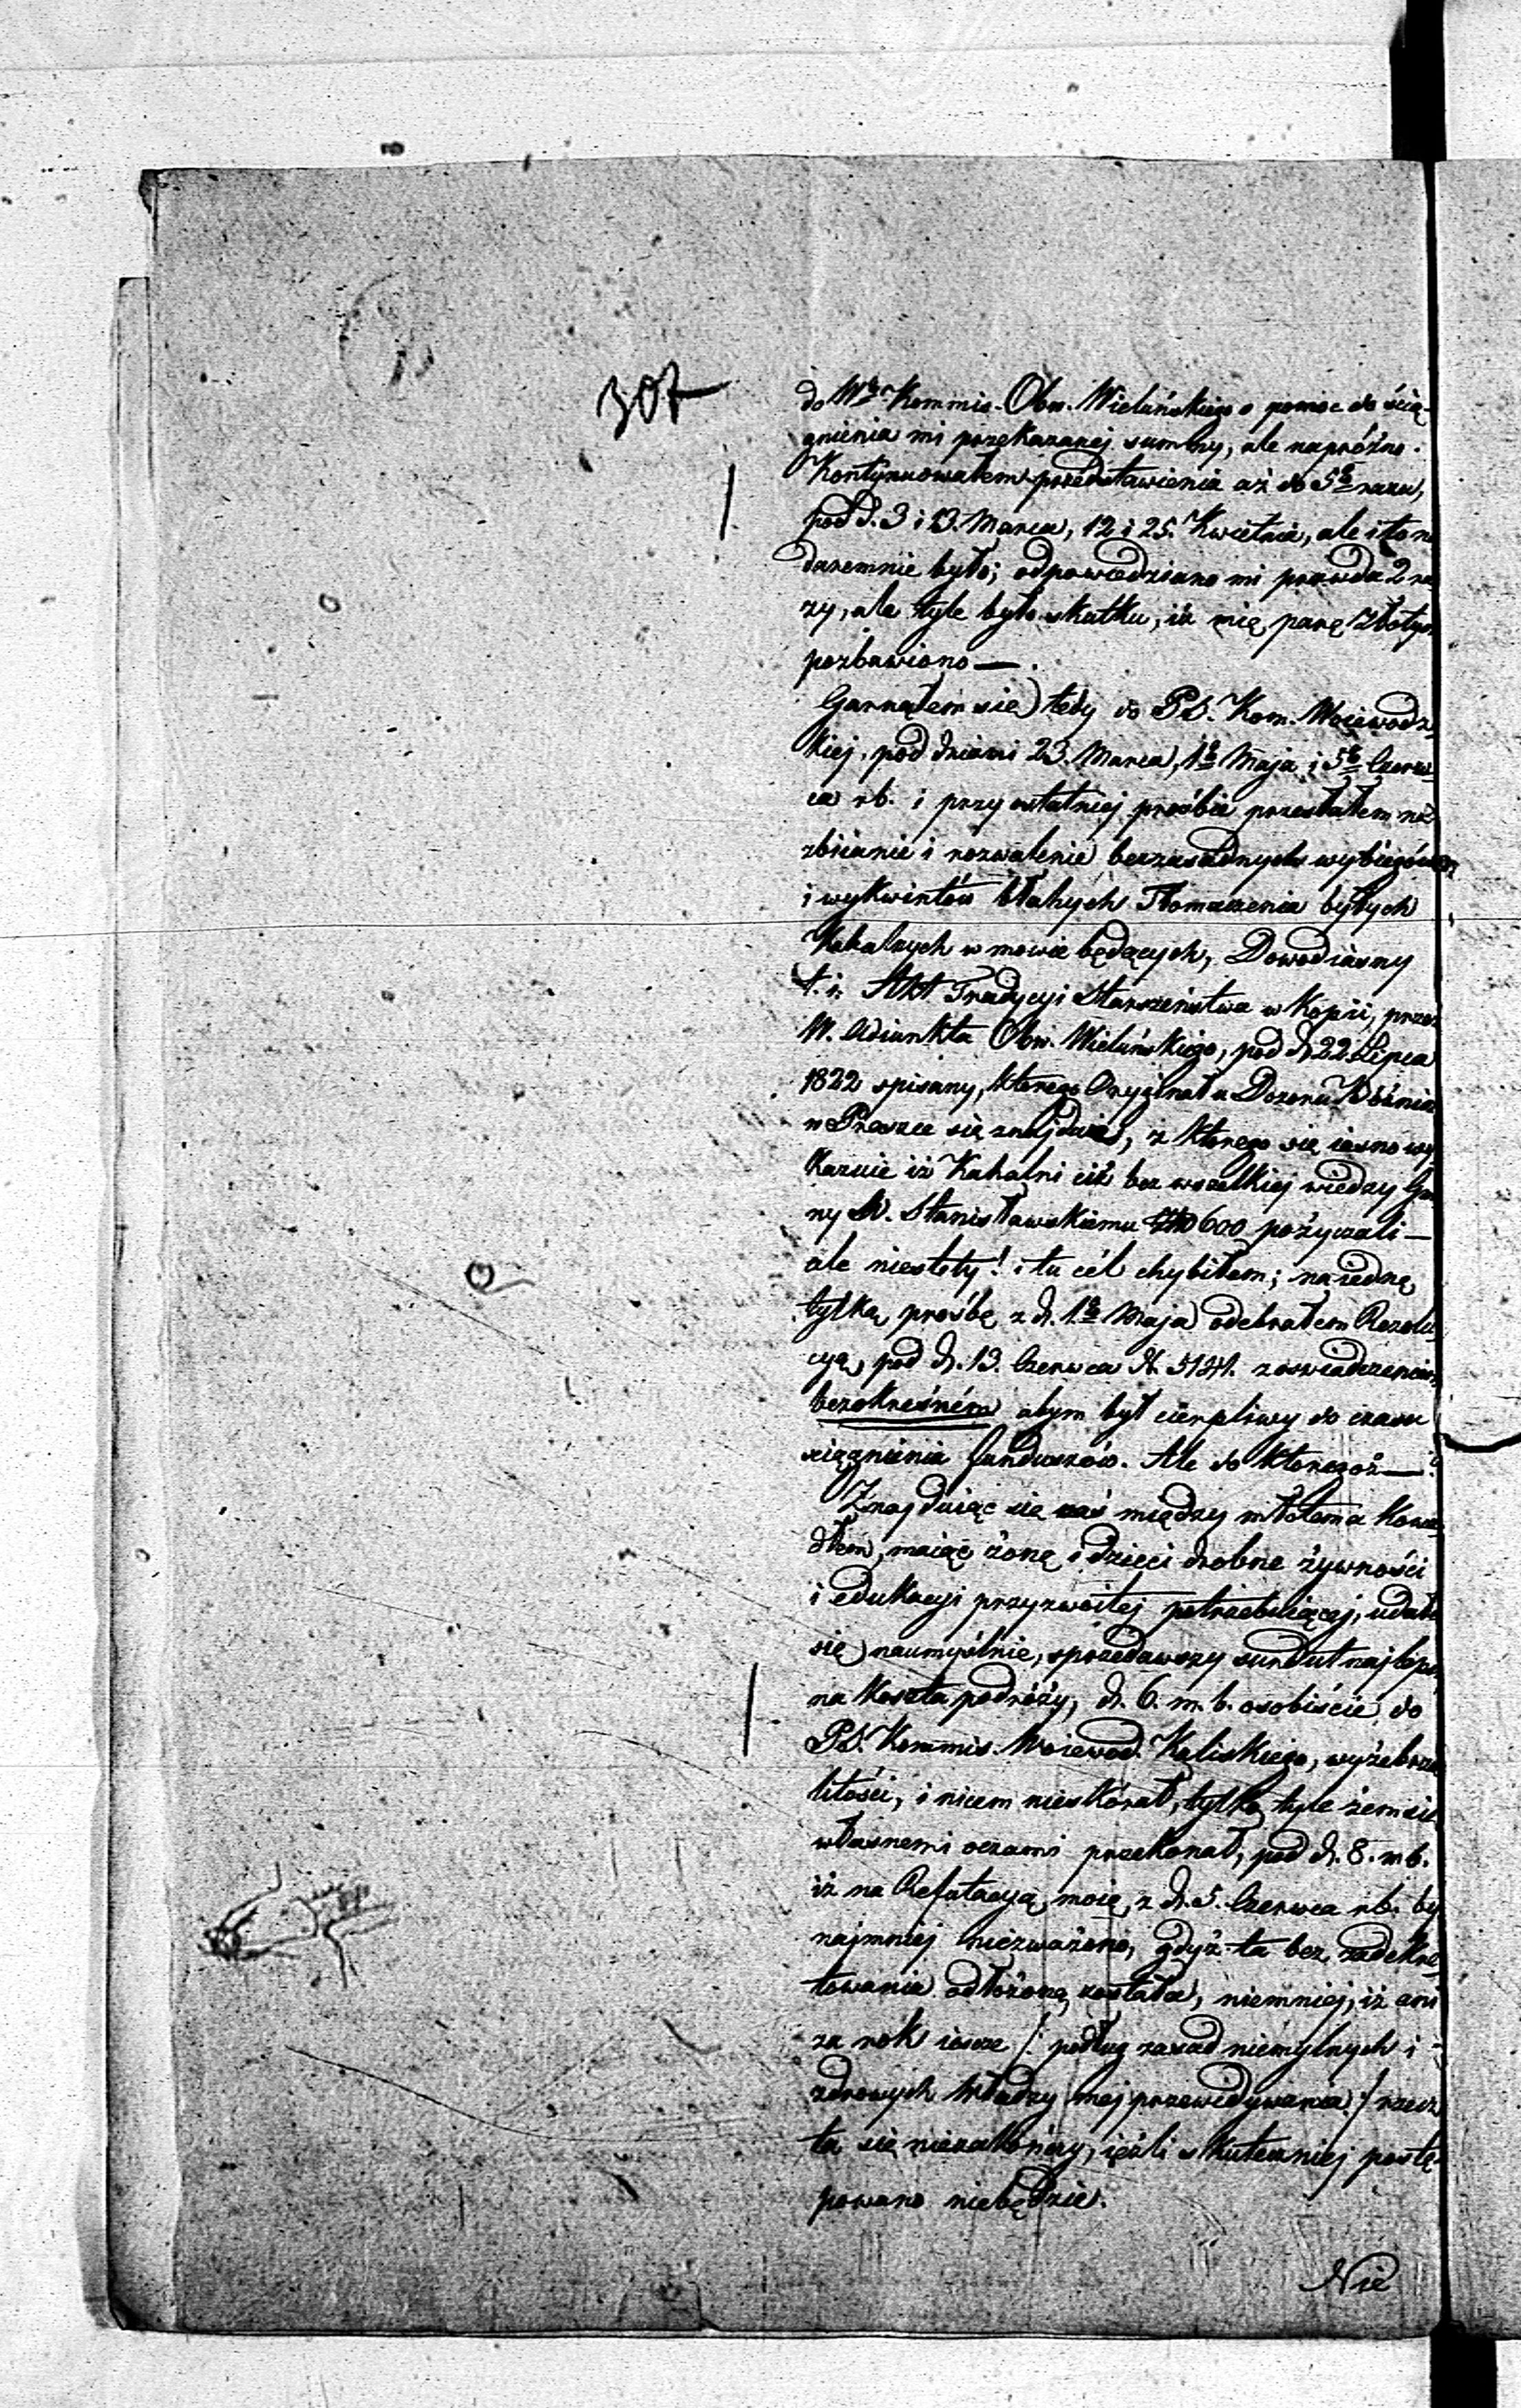 307
do Wgo Kommis. Obw. Wieluńskiego o pomoc do ścią-
gnienia mi przekazanej summy, ale napróżno.
Kontynuowałem przedstawienia aż do 5go razu,
pod d. 3 i 13. Marca, 12 i 25. Kwietnia, ale i to na
daremnie było; odpowiedziano mi prawda 2 ra
zy, ale tyle było skutku, iż mię parę złotych
pozbawiono —.
Garnąłem się tedy do PŚ. Kom. Woiewodz-
kiej, pod dniami 23. Marca, 1go Maja i 5go Czerw-
ca rb. i przy ostatniej prośbie przesłałem na
zbicanie i rozwalenie bezzasadnych wybiegów
i wykwintów błahych Tłomaczenia byłych
Kahalnych w mowie będących, Dowod iasny
t. i. Akt Tradycyi Starszeństwa w Kopii, przez
W. Adiunkta Obw. Wieluńskiego, pod d. 22 Lipca
1822 spisany, którego Oryginał u Dozoru Bóżnic
w Praszce się znajduie, z którego się iasno wy
kazuie iż Kahalni ciż bez wszelkiej wiedzy Gmi
ny W. Stanisławskiemu 600 pożyczali —
ale niestety! i tu cél chybiłem; na iedną
tylką prośbę z d. 1go Maja odebrałem Rezolu
cyą, pod d. 13. Czerwca N. 5184. z oświadczeniem
bezokreśném abym był cierpliwy do czasu
ściągnienia funduszów. Ale do któregoż —?
Znajduiąc się zaś między młotem a kowa
dłem, maiąc żonę i dzieci drobne żywności
i edukacyi przyzwoitej potrzebuiącej, udałe
się naumyślnie, sprzedawszy surdut najlepszy
na koszta podróży, d. 6. m. b. osobiście do
PŚ. Kommis. Woiewod. Kaliskiego, wyżebrać
litości, i nicem nieskórał, tylko tyle żem się
własnemi oczami przekonał, pod d. 8. m b.
iż na Refutacyą moię, z d. 5. Czerwca rb. by
najmniej niezważono, gdyż ta bez zadekre
towania odłożoną została, niemniej, iż ani
za rok iescze /: podług zasad niemylnych i
zdrowych Władzy mej przewidywania :/ rzecz
ta się niezakończy, ieżli skuteczniej postę-
powano niebędzie.
Nie